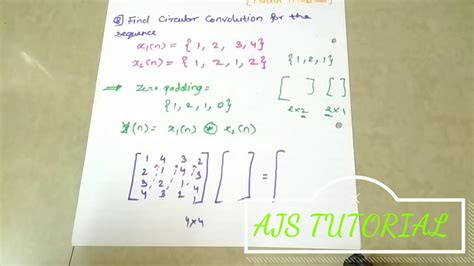 Q) Find Circular Convolution for the
sequence
x₁(n) = { 1, 2, 3, 4 }
x₂(n) = { 1, 2, 1, 2 }
{ 1, 2, 1 }
[ ] [ ]
2×2 2×1
⇒ Zero padding =
{ 1, 2, 1, 0 }
Y(n) = x₁(n) ⊛ x₂(n)
[ 1 4 3 2
2 1 4 3
3 2 1 4
4 3 2 1 ] [ ] = [
4×4
AJS TUTORIAL